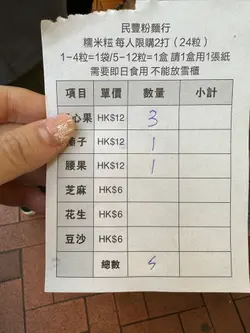 民豐粉麵行
糯米糍 每人限購2打（24粒）
1-4粒=1袋/5-12粒=1盒 請1盒用1張紙
需要即日食用 不能放雪櫃
項目 單價 數量 小計
心果 HK$12 3
子 HK$12 1
腰果 HK$12 1
芝麻 HK$6
花生 HK$6
豆沙 HK$6
總數 5